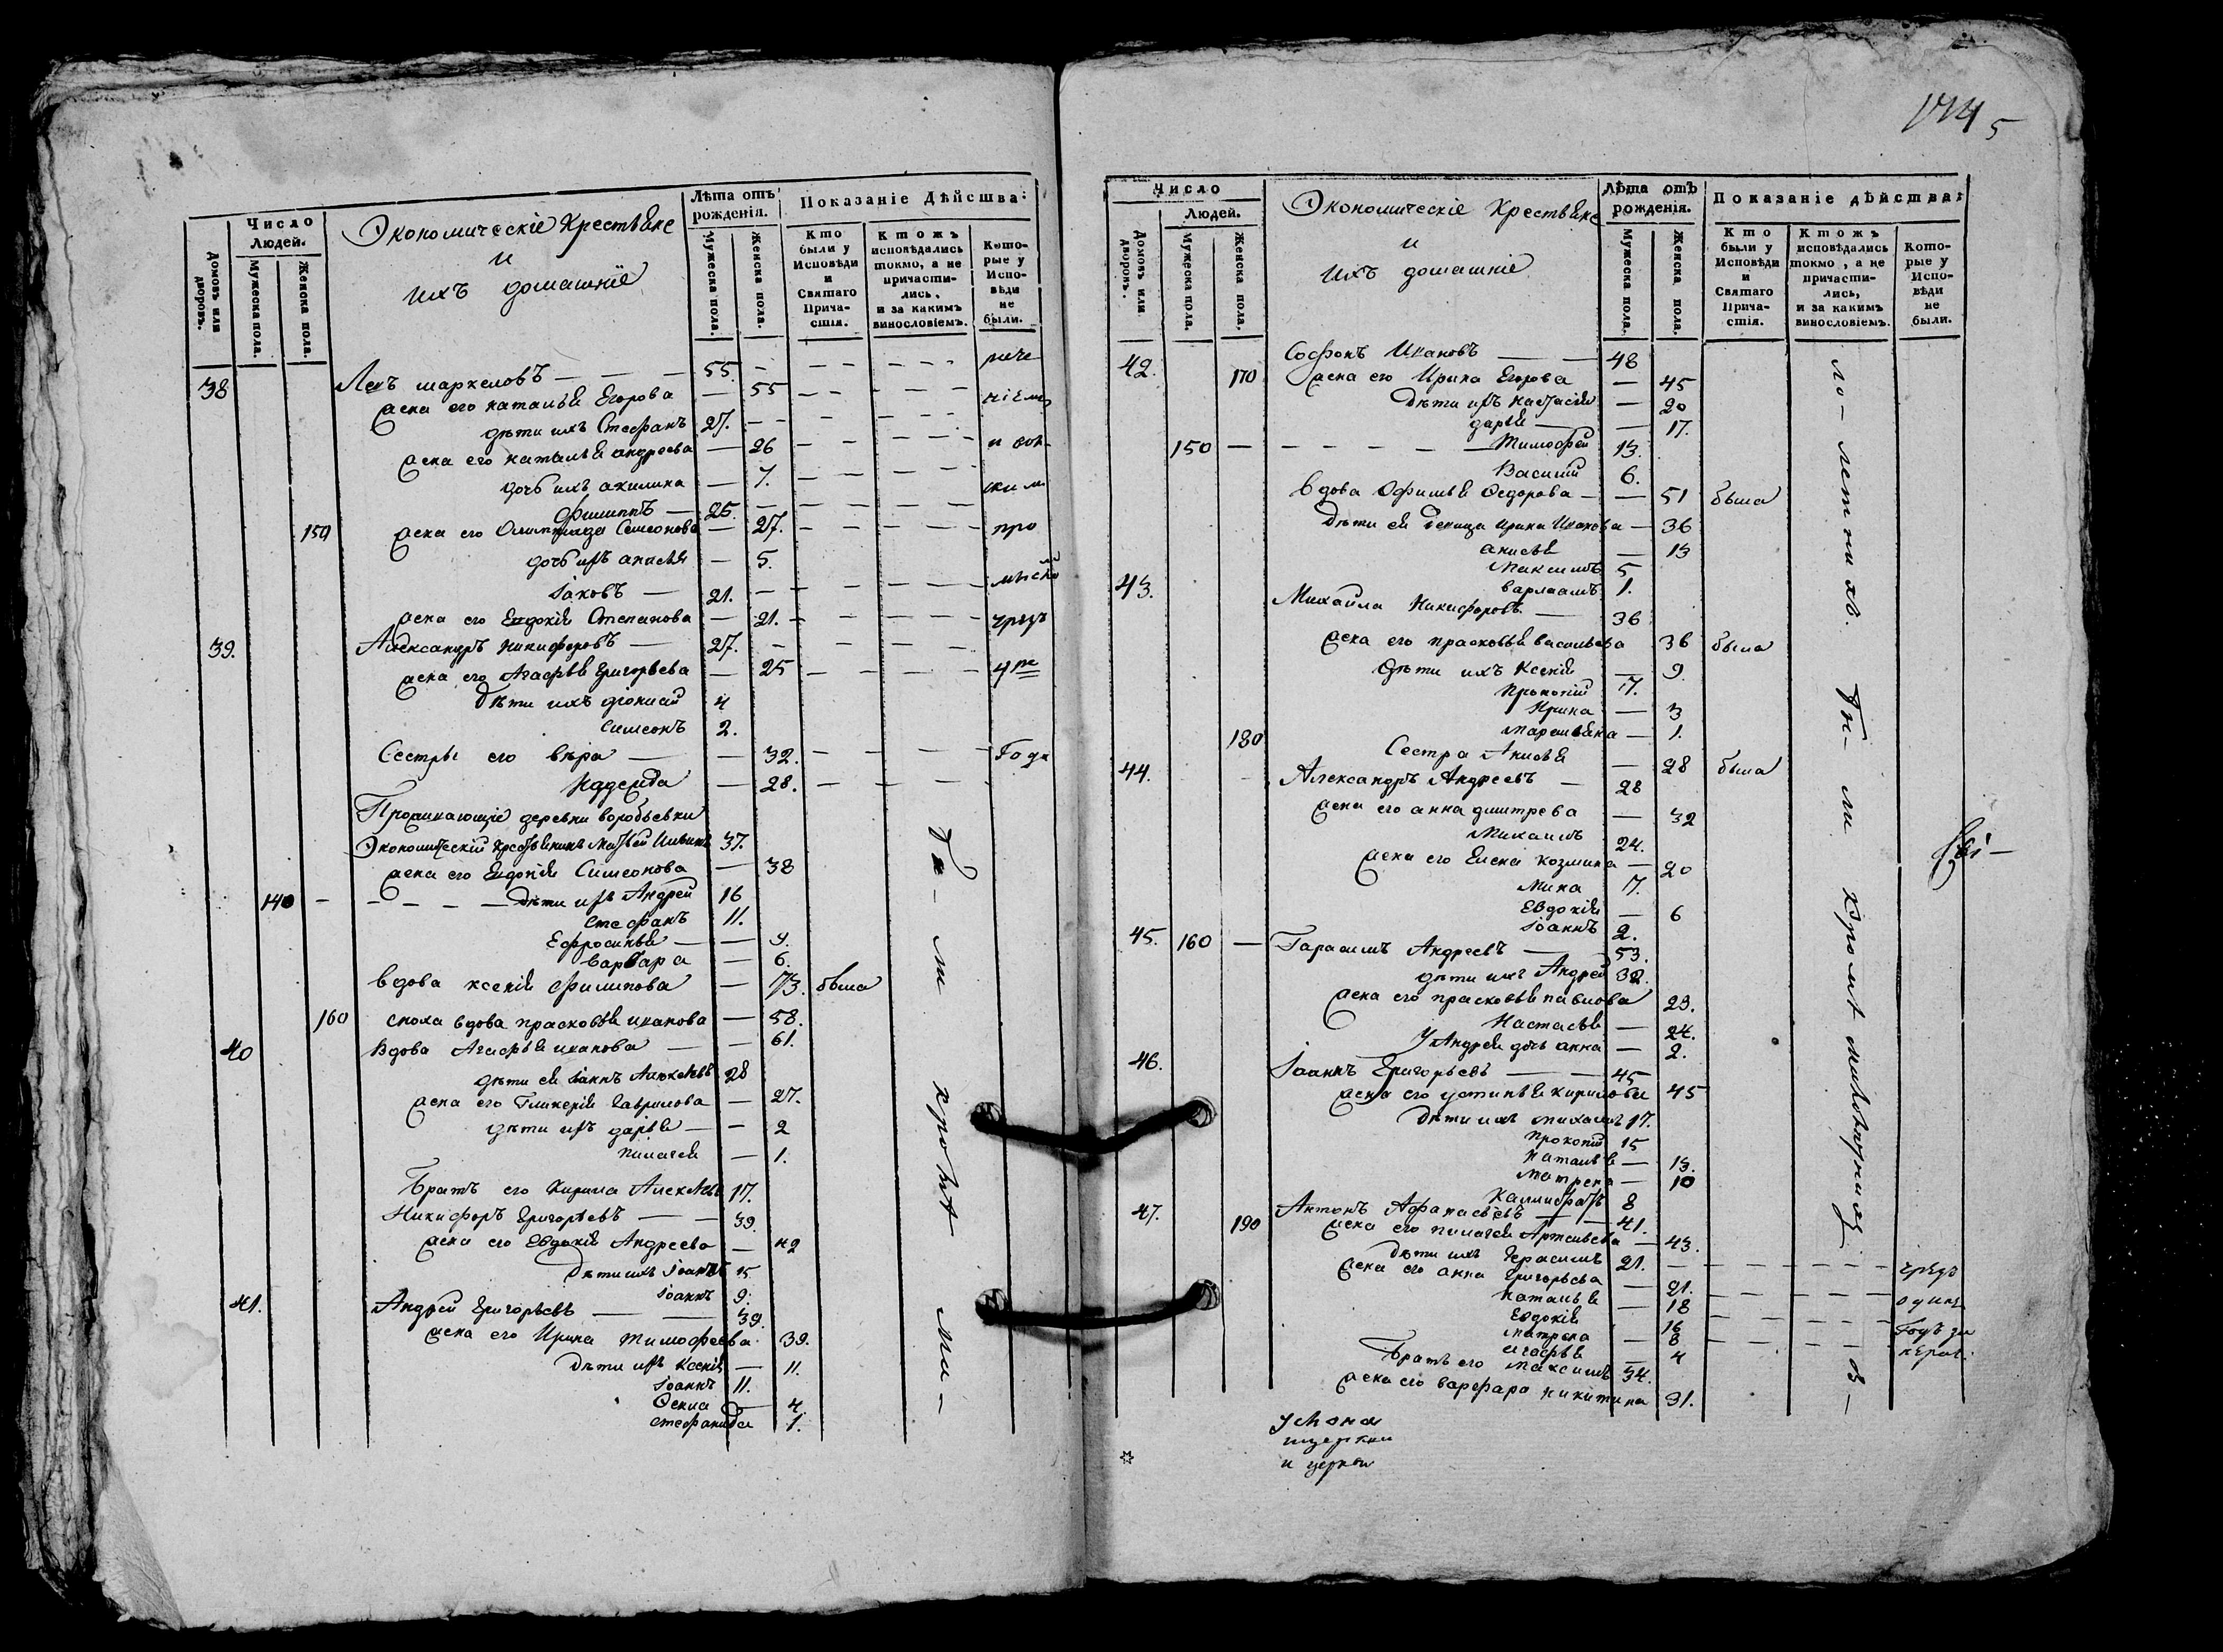 Число
Людей.
Домовъ или дворовъ.
Мужеска пола.
Женска пола.
Экономическіе Крестьяне
и
ихъ домашніе
Лѣта отъ рожденія.
Мужеска пола.
Женска пола.
Показаніе Дѣйства:
Кто были у Исповѣди и Святаго Прича-стія.
Ктожъ исповѣдались токмо, а не причасти-лись, и за какимъ винословіемъ.
Кото-рые у Испо-вѣди не были.
38 Левъ Маркеловъ — 55. - - -
жена его Наталья Егорова — 55 - - -
дѣти ихъ Стефанъ 27. - - -
жена его Наталья Андреева — 26 - - -
дочь ихъ Акилина — 7. - - -
Филиппъ — 25. - - -
150 жена его Олимпиада Симеонова — 27. - - - про
дочь ихъ Анисья — 5.
Іаковъ — 21. - - -
жена его Евдокія Степанова — 21. - - - чрезъ
39. Александръ Никифоровъ — 27. - - -
жена его Агафья Григорьева — 25 - - -
Дѣти ихъ Діонисій 4
Симеонъ 2.
Сестры его Вѣра — 32. - - - Года
Надежда — 28. - - -
Проживающіе деревни Воробьевки
Экономическій крестьянинъ Матвей 37.
жена его Евдокія Симеонова — 38
140 - - - дѣти ихъ Андрей 16
Стефанъ 11.
Ефросинья — 9.
Варвара — 6.
Вдова Ксенія Филипова — 73. была
160 сноха вдова Прасковья Иванова — 58.
40 Вдова Агафья Иванова — 61.
дѣти ея Іоаннъ Алексѣевъ 28
жена его Гликерія Гаврилова — 27.
дѣти ихъ Дарья — 2
Пелагея — 1.
Братъ его Кирила Алексѣевъ 17.
Никифоръ Григорьевъ — 39.
жена его Евдокія Андреева — 42
Дѣти ихъ Іоаннъ 15
Іоаннъ 9.
41. Андрей Григорьевъ — 39.
жена его Ирина Тимофеева 39.
Дѣти ихъ Ксенія — 11.
Іоаннъ 11.
Фекла — 4.
Стефанида 1.
кромѣ
174
5
Число
Людей.
Домовъ или дворовъ.
Мужеска пола.
Женска пола.
Экономическіе Крестьяне
и
ихъ домашніе
Лѣта отъ рожденія.
Мужеска пола.
Женска пола.
Показаніе дѣйства:
Кто были у Исповѣди и Святаго Прича-стія.
Ктожъ исповѣдались токмо, а не причасти-лись, и за какимъ винословіемъ.
Кото-рые у Испо-вѣди не были.
42. Софронъ Ивановъ — 48
170 жена его Ирина Егорова — 45
дѣти ихъ Настасія — 20
Дарья — 17.
150 - - - Тимофей 13.
Василій 6.
Вдова Офимья Федорова — 51 была
Дѣти ея девица Ирина Иванова — 36
Анисья — 13
Максимъ 5
Варлаамъ 1.
43. Михайла Никифоровъ — 36
жена его Прасковья Васильева 36 была
Дѣти ихъ Ксенія — 9
Прокопій 7.
Ирина — 3
Марємьяна — 1.
180 Сестра Анисья — 28 была
44. Александръ Андреевъ — 28
жена его Анна Дмитрева — 32
Михаилъ 24.
жена его Елена Козмина — 20
Мина 7.
Евдокія — 6
Іоаннъ 2.
45. 160 — Гарасимъ Андреевъ — 53.
дѣти ихъ Андрей 32.
жена его Прасковья Павлова 23.
Настасья — 24.
У Андрея дочь Анна — 2.
46. Іоаннъ Григорьевъ — 45
жена его Устинья Кирилова 45
Дѣти ихъ Михаилъ 17.
Прокопій 15
Наталья — 13.
Матрена — 10
Каллистратъ 8
47. Антонъ Афанасьевъ — 41.
190 жена его Пелагея Артемьева — 43.
Дѣти ихъ Герасимъ 21. - - - чрезъ
жена его Анна Григорьева — 21. - - - одинъ
Наталья — 18 - - -
Евдокія — 16 - - - Годъ
Матрена — 8
Агафья — 4
Братъ его Максимъ 34.
жена его Варвара Никитина 31.
ло-летнихъ. кромѣ
и церкви